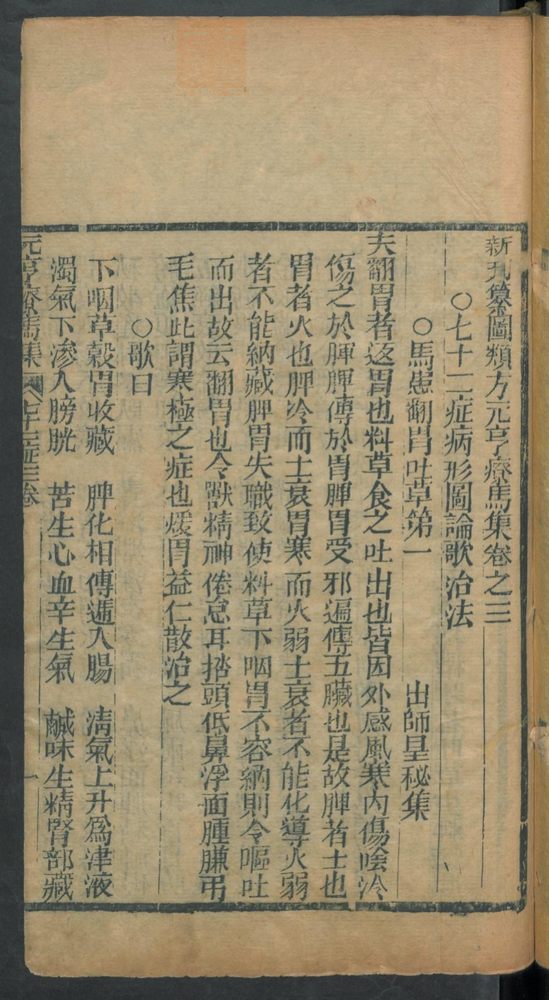 新刋纂圖類方元亨療馬集卷之三
○七十二症病形圖論歌治法
○馬患翻胃吐草第一 出師皇秘集
夫翻胃者返胃也料草食之吐出也皆因外感風寒内傷陰冷
傷之於脾脾傳於胃脾胃受邪逼傳五臟也是故脾者土也
胃者火也脾冷而土衰胃寒而火弱土衰者不能化導火弱
者不能納藏脾胃失職致使料草下咽胃不容納則令嘔吐
而出故云翻胃也令獸精神倦怠耳搭頭低鼻浮面腫膁吊
毛焦此謂寒極之症也煖胃益仁散治之
○歌曰
下咽草穀胃收藏 脾化相傳遞入腸 清氣上升爲津液
濁氣下滲入膀胱 苦生心血辛生氣 鹹味生精腎部藏
元亨療馬集 七十二症三卷 一